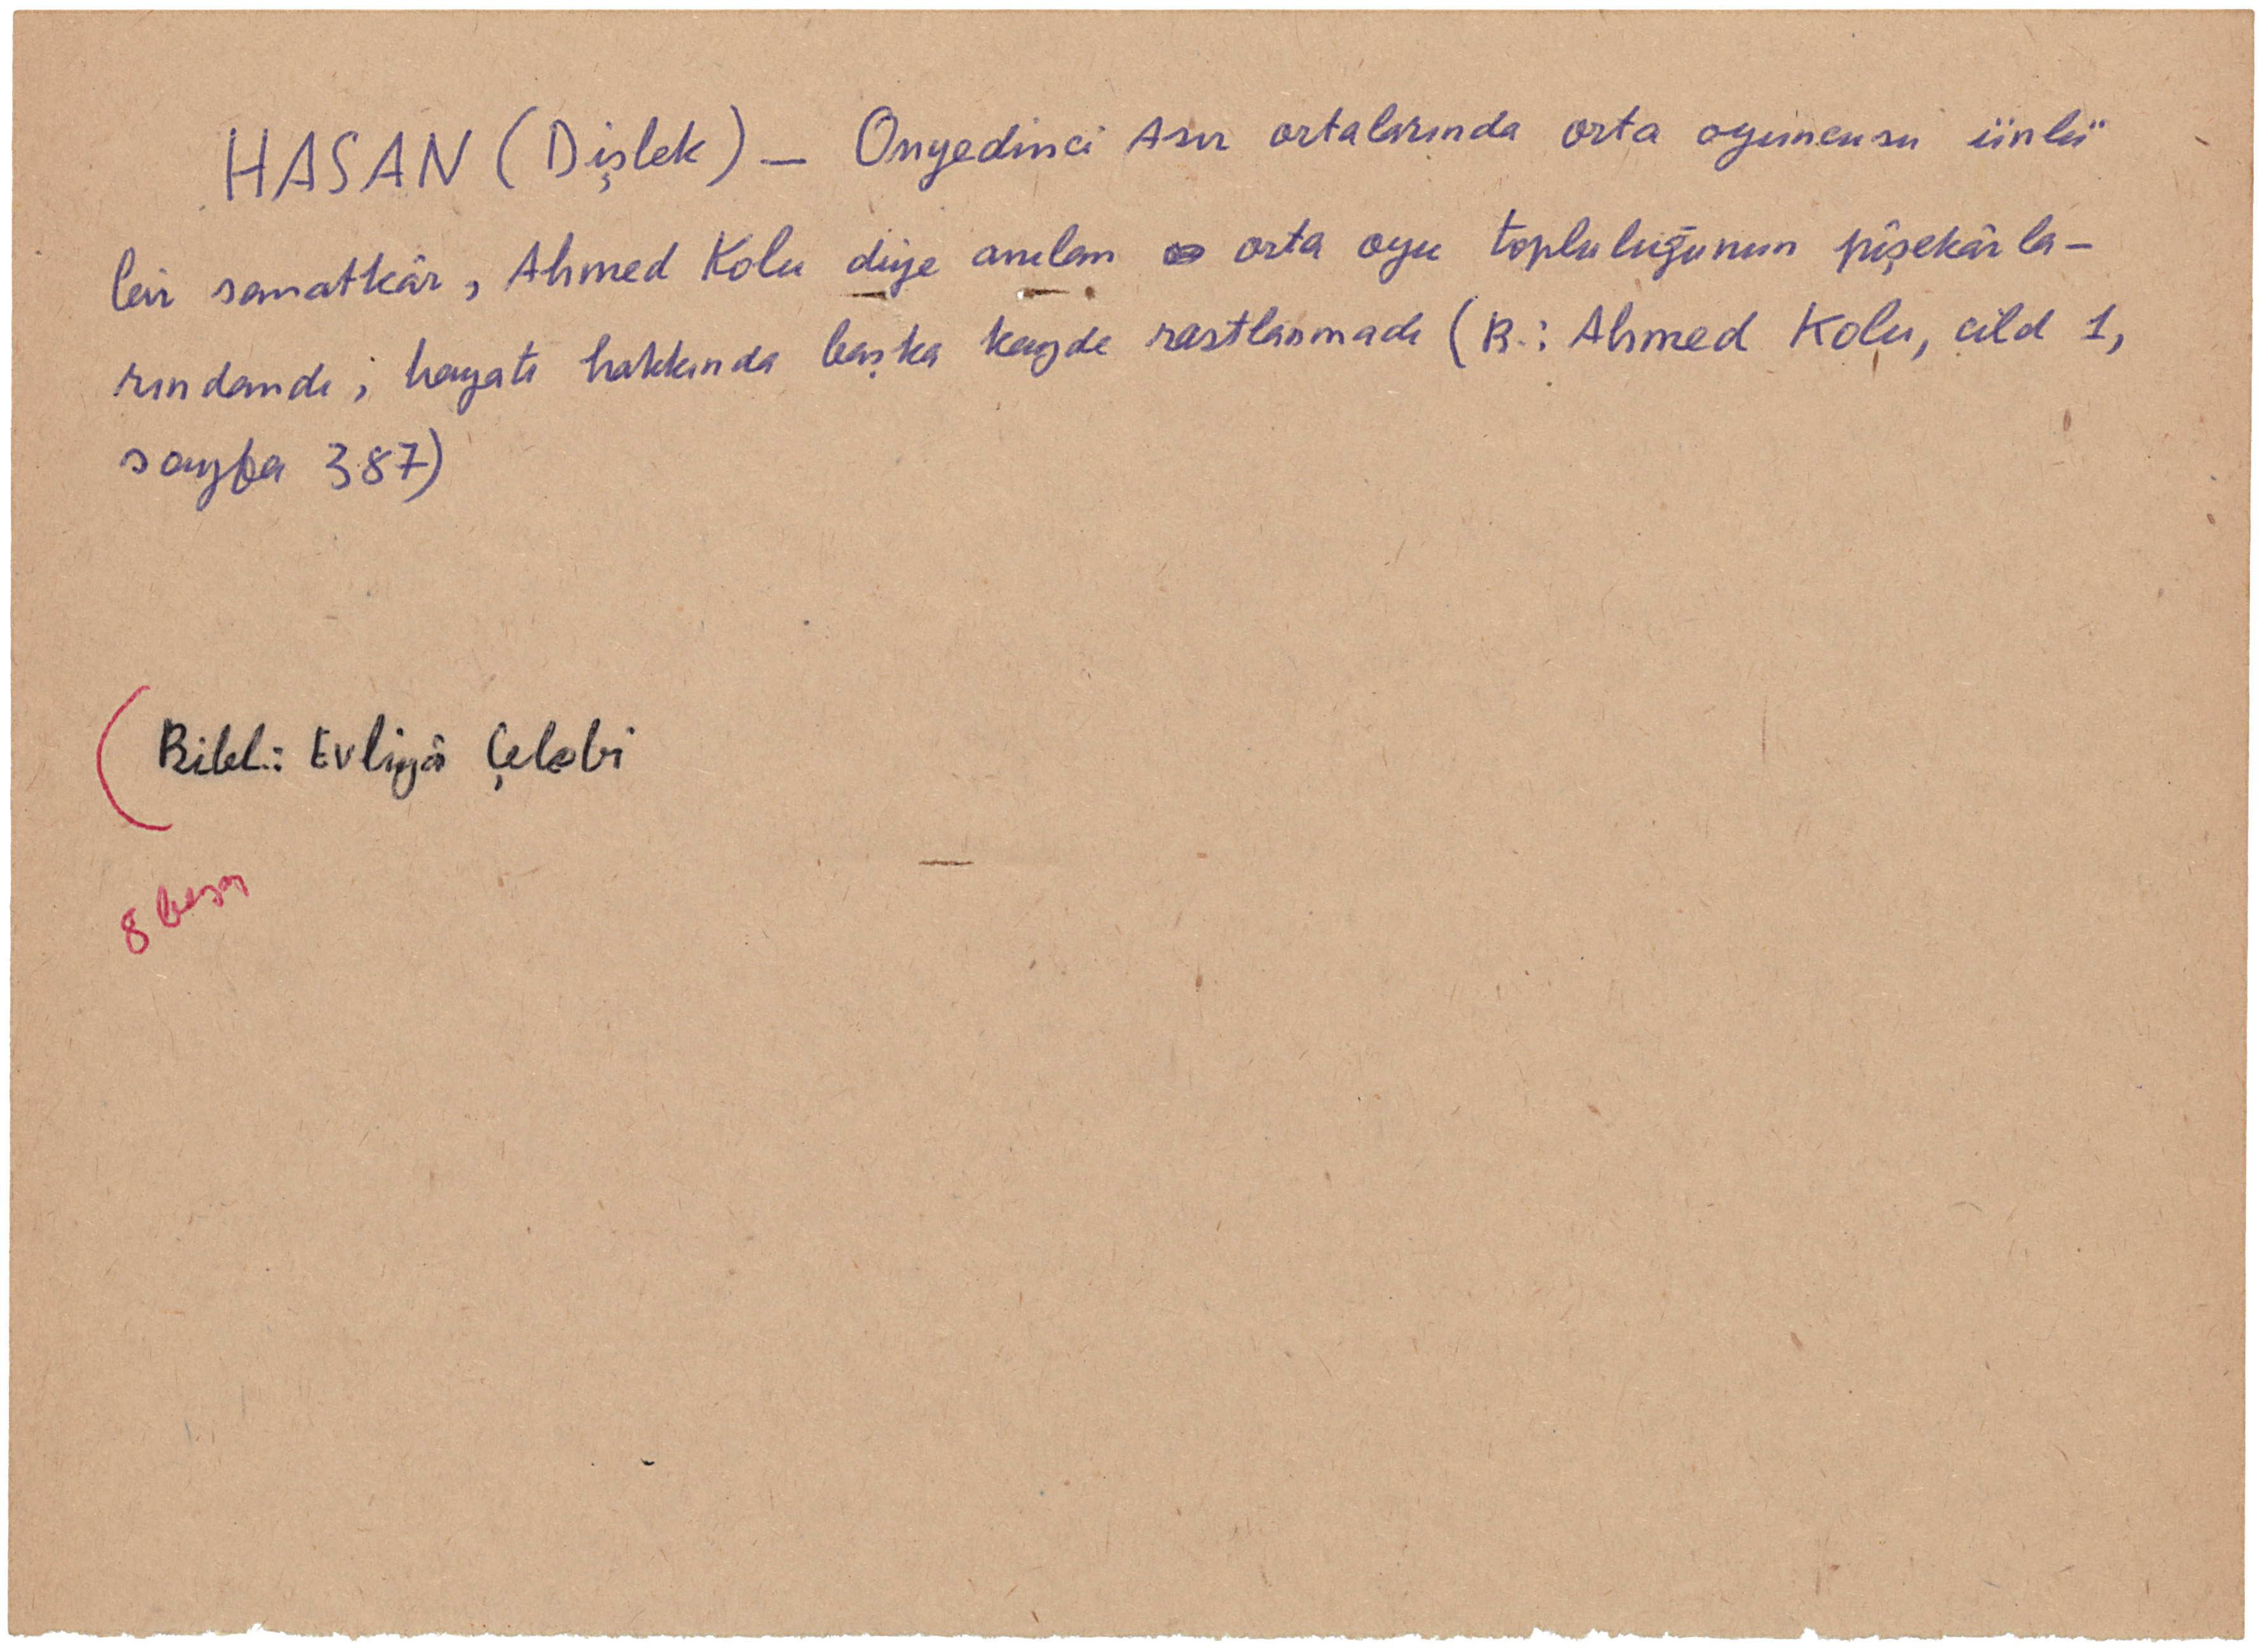 HASAN (Dişlek) — Onyedinci Asır ortalarında orta oyuncusu ünlü
bir sanatkâr, Ahmed Kolu diye anılan orta oyu topluluğunun pişekârla-
rındandı; hayatı hakkında başka kayde rastlanmadı (B.: Ahmed Kolu, cild 1,
sayfa 387)
Bibl.: Evliyâ Çelebi
8